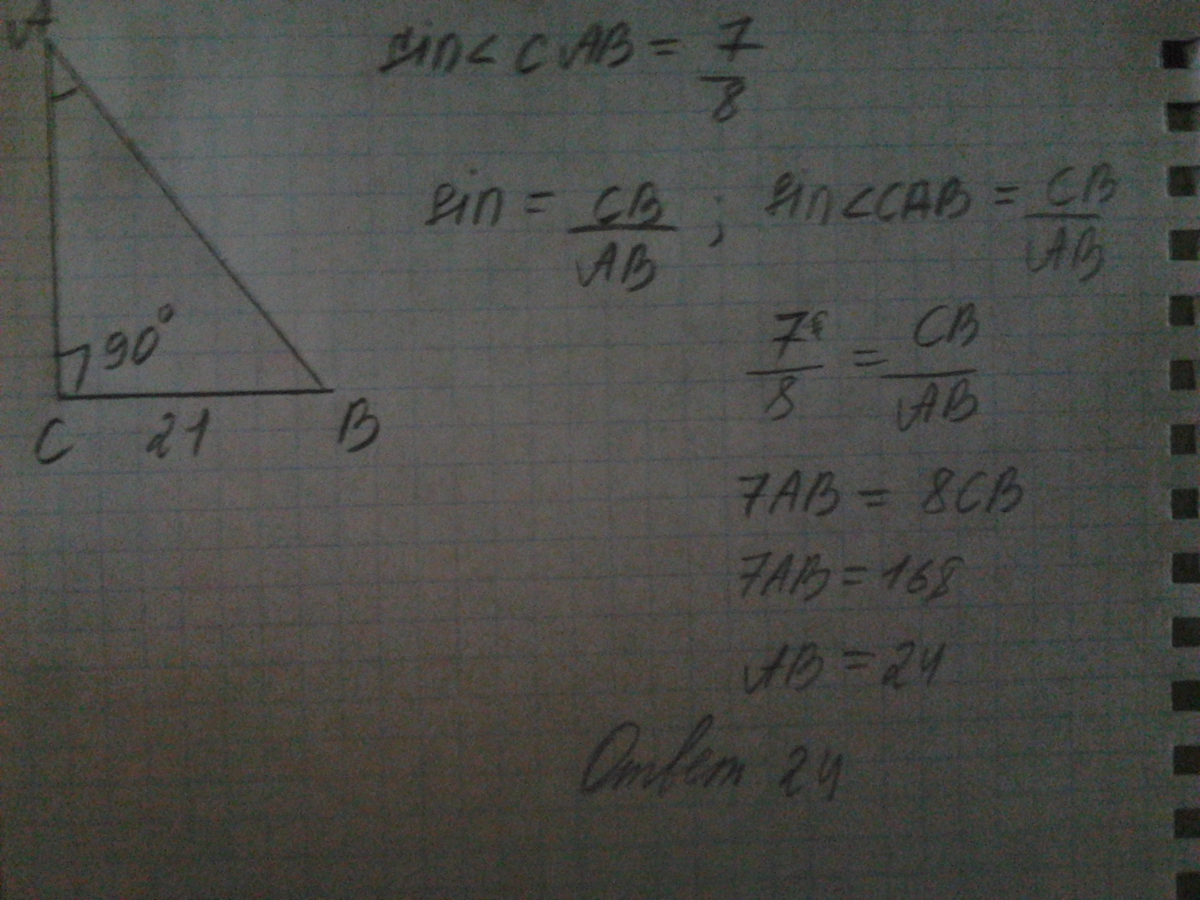 A
sin < CAB = 7/8
sin = CB/AB ; sin < CAB = CB/AB
90°
7/8 = CB/AB
C 21 B
7AB = 8CB
7AB = 168
AB = 24
Ответ 24